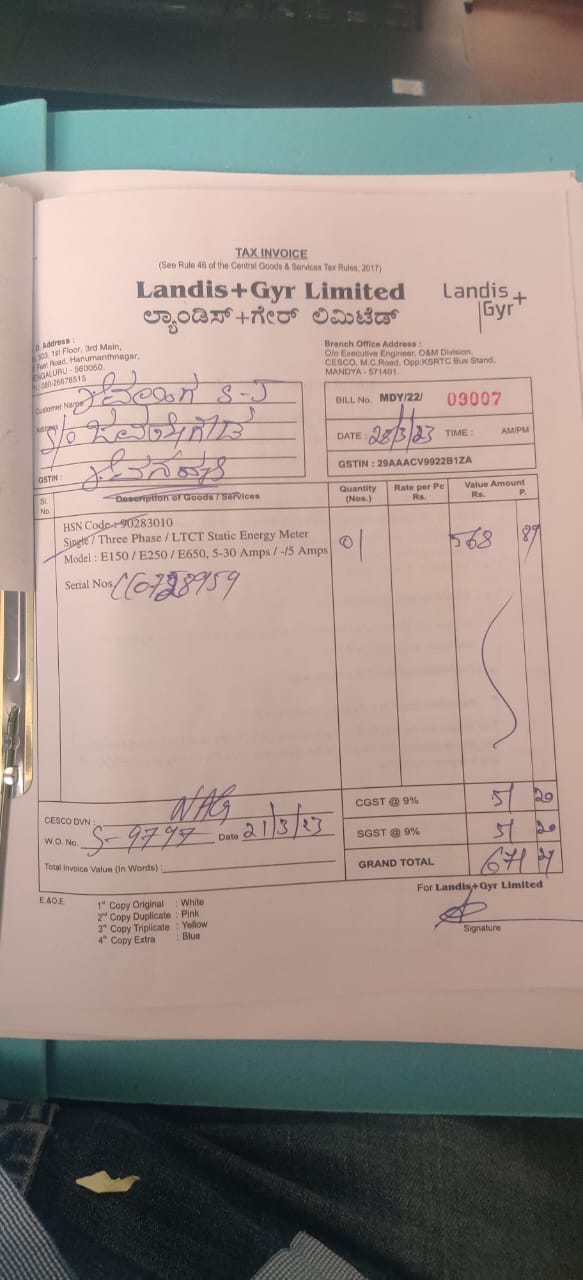 TAX INVOICE
(See Rule 46 of the Central Goods & Services Tax Rules, 2017)
Landis+Gyr Limited
ಲ್ಯಾಂಡಿಸ್+ಗೇರ್ ಲಿಮಿಟೆಡ್
Landis+
Gyr
Address :
503, 1st Floor, 3rd Main,
Feet Road, Hanumanthnagar,
BENGALURU - 560050.
080-26678515
Branch Office Address :
O/o Executive Engineer, O&M Division,
CESCO, M.C.Road, Opp:KSRTC Bus Stand,
MANDYA - 571401.
Customer Name S-J
Address S/o
GSTIN :
BILL No. MDY/22/ 09007
DATE : 28/3/23 TIME : AM/PM
GSTIN : 29AAACV9922B1ZA
Sl. No. Description of Goods / Services Quantity (Nos.) Rate per Pc Rs. Value Amount Rs. P.
HSN Code : 90283010
Single / Three Phase / LTCT Static Energy Meter
Model : E150 / E250 / E650, 5-30 Amps / -/5 Amps 01 568 89
Serial Nos
CGST @ 9% 51 20
SGST @ 9% 51 20
GRAND TOTAL 671 27
CESCO DVN : NAG
W.O. No. S-9797 Date 21/3/23
Total Invoice Value (In Words) :
E.&O.E.
1st Copy Original : White
2nd Copy Duplicate : Pink
3rd Copy Triplicate : Yellow
4th Copy Extra : Blue
For Landis+Gyr Limited
Signature